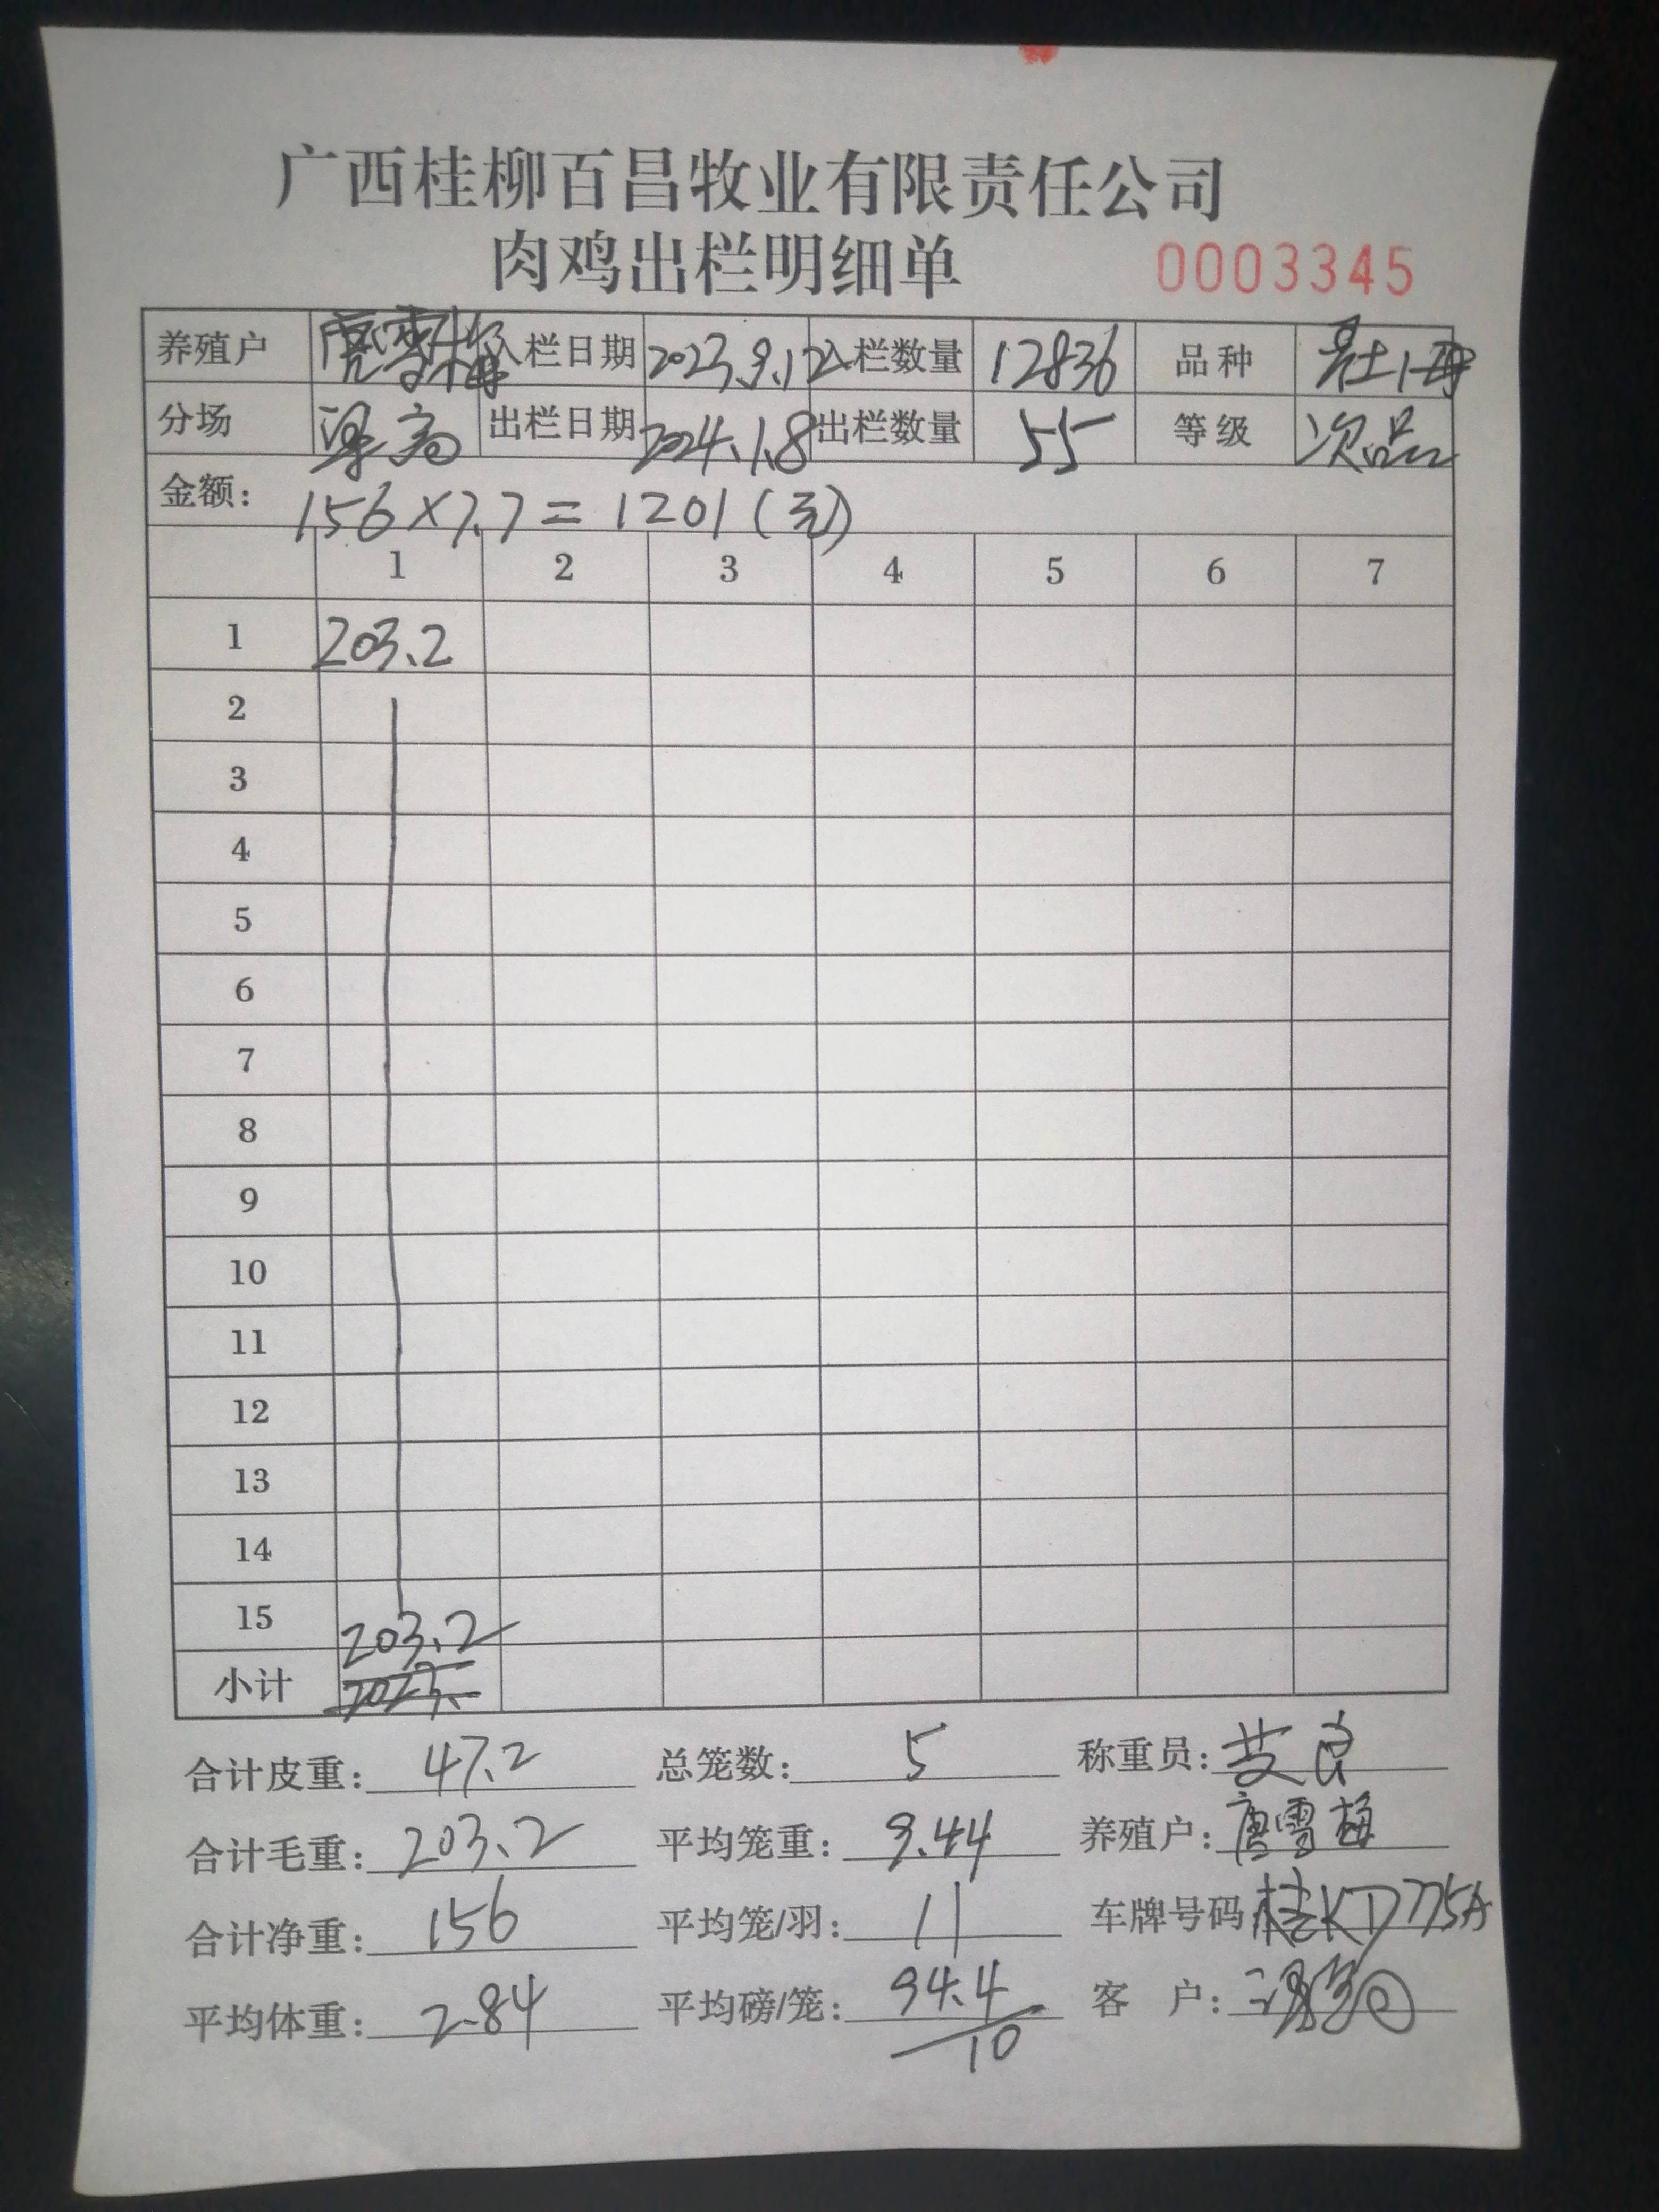 广西桂柳百昌牧业有限责任公司
肉鸡出栏明细单 0003345
养殖户 唐雪梅 入栏日期 2023.9.12 入栏数量 12836 品种
分场 出栏日期 2024.1.8 出栏数量 55 等级 次品
金额: 156×7.7=1201(元)
1 2 3 4 5 6 7
1 203.2
2
3
4
5
6
7
8
9
10
11
12
13
14
15 203.2
小计
合计皮重: 47.2 总笼数: 5 称重员:
合计毛重: 203.2 平均笼重: 9.44 养殖户: 唐雪梅
合计净重: 156 平均笼/羽: 11 车牌号码 桂KD775A
平均体重: 2.84 平均磅/笼: 94.4/10 客 户: